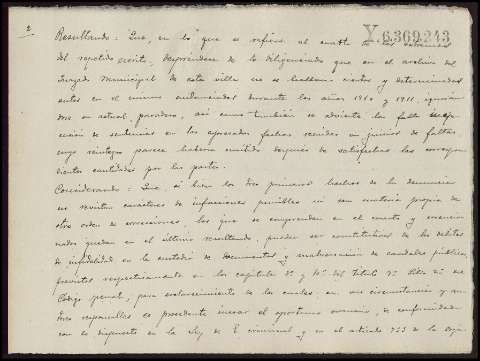 2
Y.6369243
Resultando: Que, en lo que se refiere al cuarto de los extremos
del repetido escrito, despréndese de lo diligenciado que en el archivo del
Juzgado Municipal de esta villa no se hallan ciertos y determinados
autos en el mismo sustanciados durante los años 1910 y 1911, ignorán
dose su actual paradero, así como también se advierte la falta
de sentencias en los expresados fechas en juicios de faltas,
cuyo reintegro parece haberse omitido después de satisfechas las correspon
dientes cantidades por las partes.
Considerando: Que, si bien los tres primeros hechos de la denuncia
no revisten caracteres de infracciones punibles ni son materia propia de
otro orden de correcciones, los que se comprenden en el cuarto y
nados quedan en el último resultando, pueden ser constitutivos de los delitos
de infidelidad en la custodia de documentos y malversación de caudales públicos,
previstos respectivamente en los capítulos y 10º del Título 7º Libro 2º del
Código penal, para esclarecimiento de los cuales, en sus circunstancias y au
tores responsables es procedente incoar el oportuno sumario, de conformidad
con lo dispuesto en la Ley de E. criminal y en el artículo